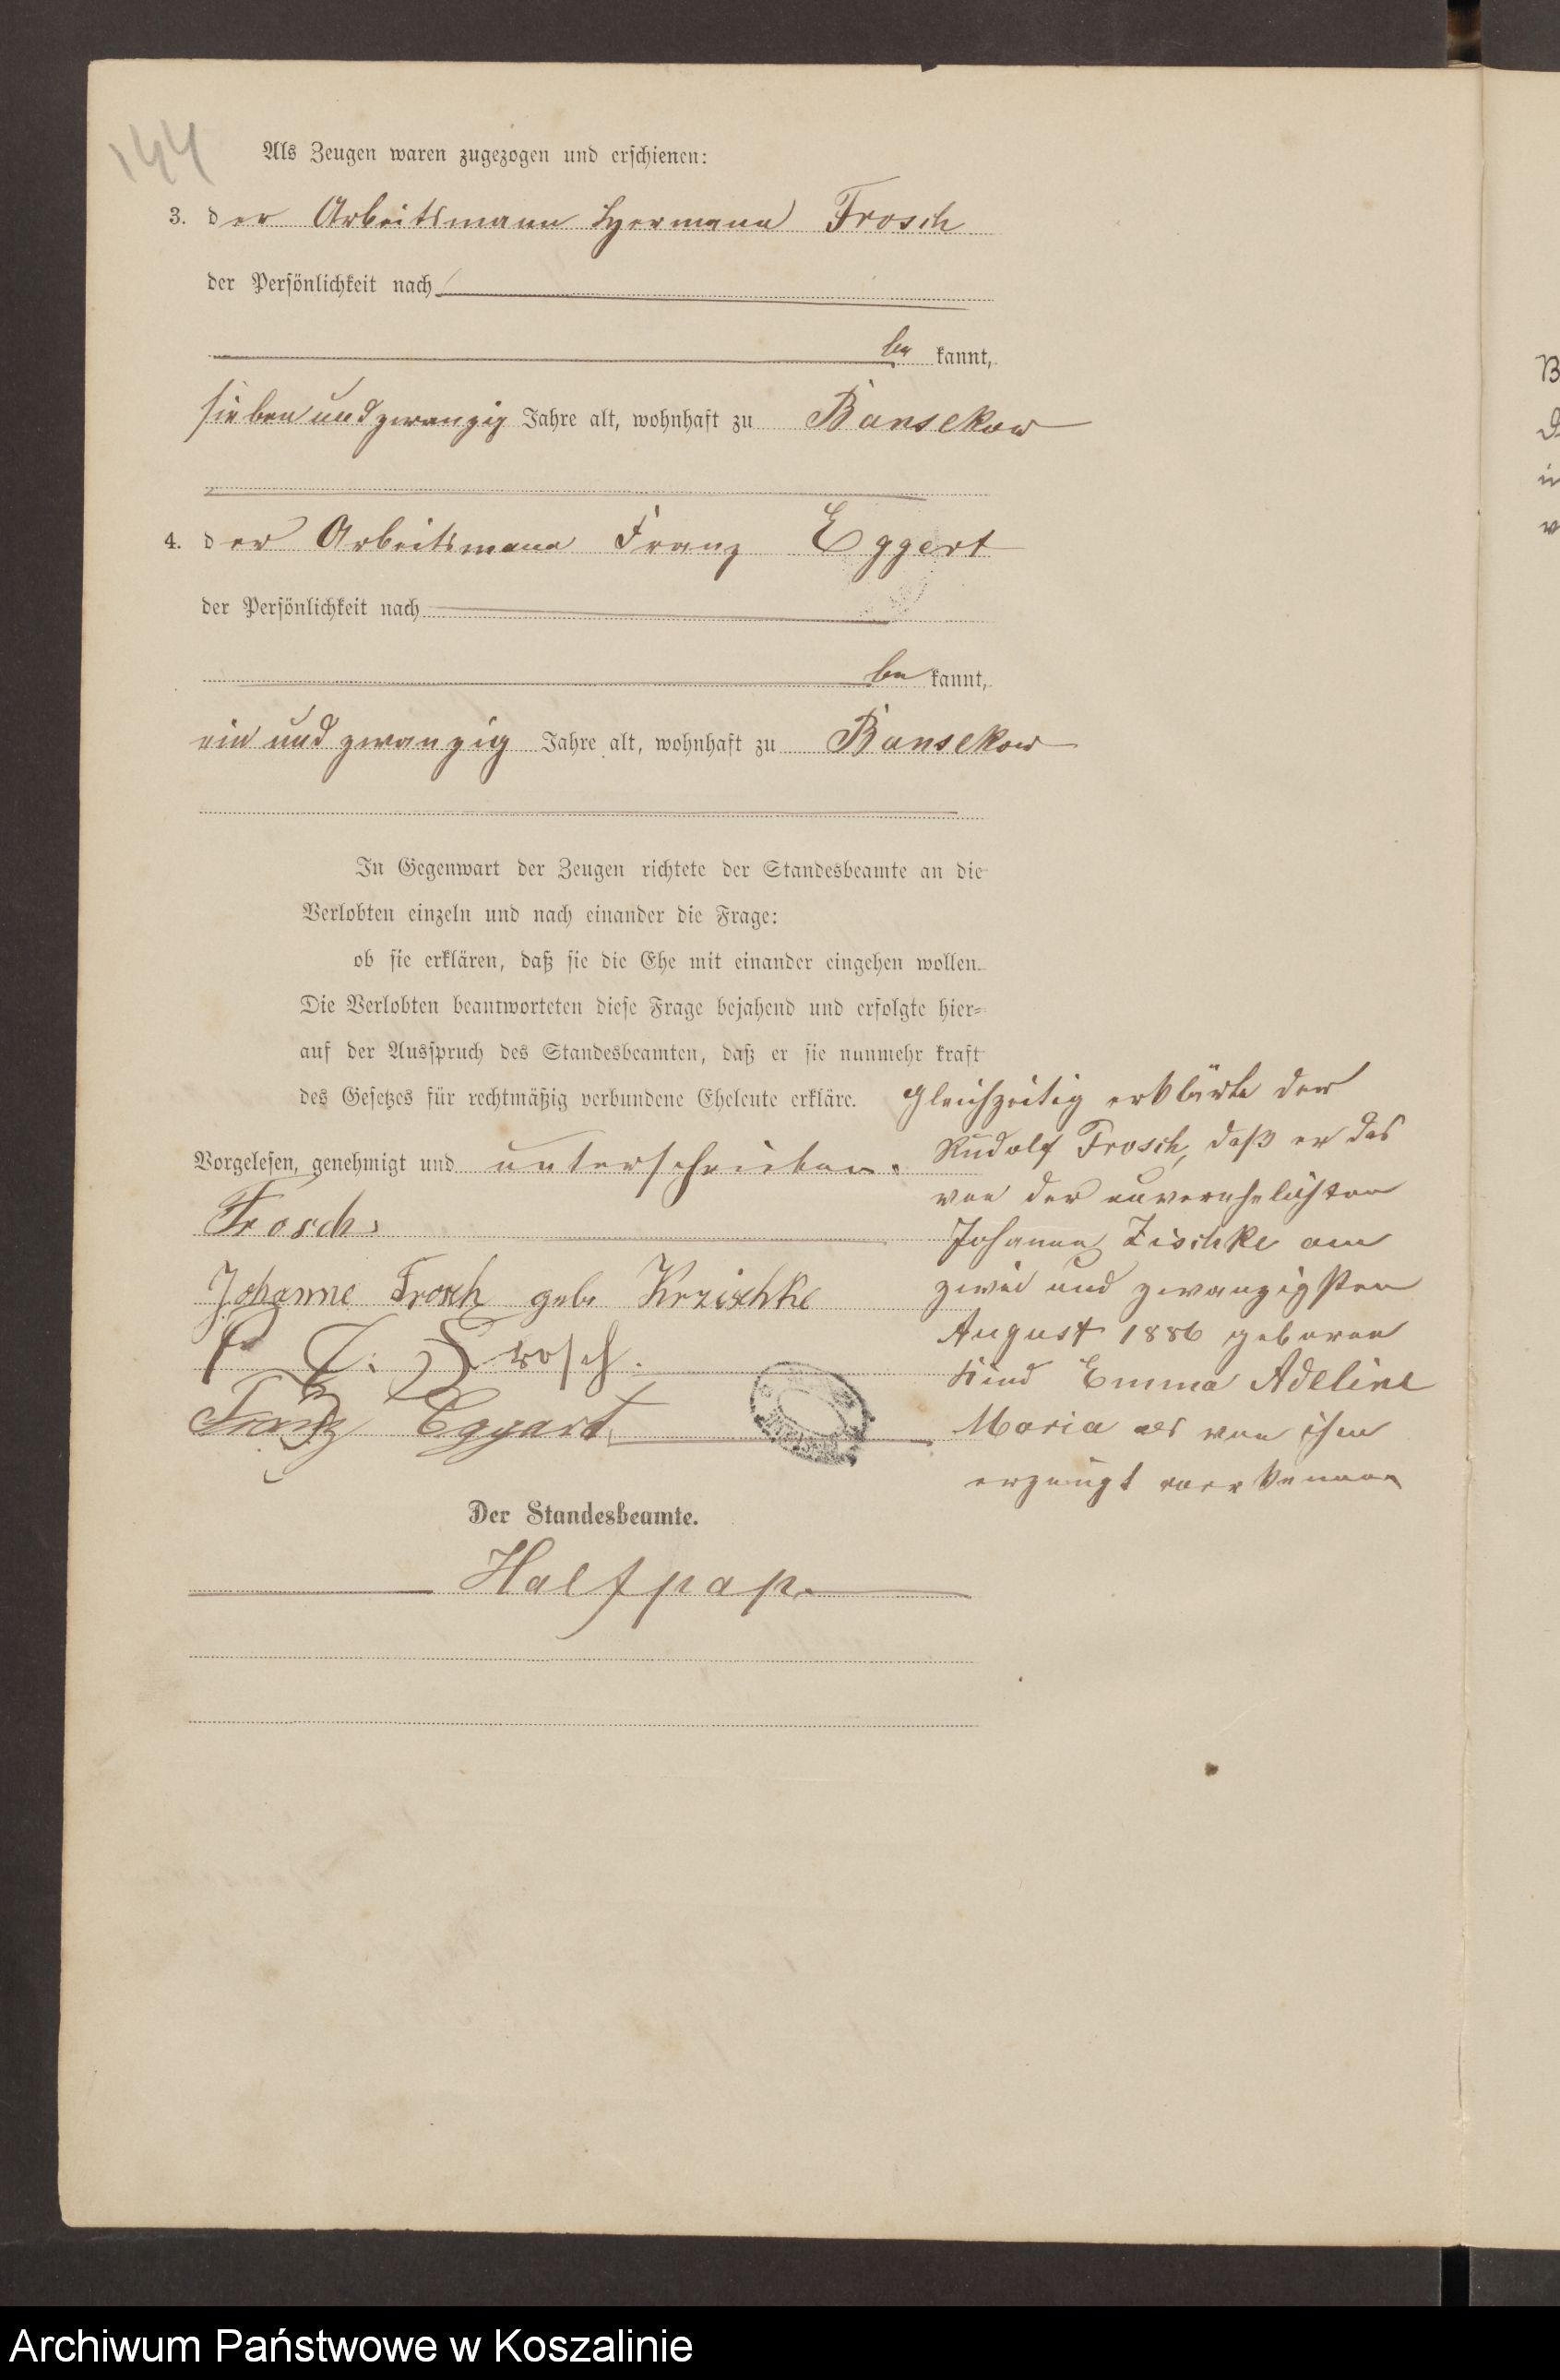 144
Als Zeugen waren zugezogen und erschienen:
3. der Arbeitsmann Hermann Frosch
der Persönlichkeit nach
be kannt,
sieben und zwanzig Jahre alt, wohnhaft zu Bansekow
4. der Arbeitsmann Franz Eggert
der Persönlichkeit nach
be kannt,
ein und zwanzig Jahre alt, wohnhaft zu Bansekow
In Gegenwart der Zeugen richtete der Standesbeamte an die
Verlobten einzeln und nach einander die Frage:
ob sie erklären, daß sie die Ehe mit einander eingehen wollen.
Die Verlobten beantworteten diese Frage bejahend und erfolgte hier-
auf der Ausspruch des Standesbeamten, daß er sie nunmehr kraft
des Gesetzes für rechtmäßig verbundene Eheleute erkläre.
Vorgelesen, genehmigt und unterschrieben.
Frosch
Johanne Frosch geb. Krzischke
Frosch.
Franz Eggert
Der Standesbeamte.
Halfpap.
Gleichzeitig erklärte der
Rudolf Frosch, daß er das
von der unverehelichten
Johanne Zischke am
zwei und zwanzigsten
August 1886 geborene
Kind Emma Adeline
Maria als von ihm
erzeugt anerkenne
Archiwum Państwowe w Koszalinie